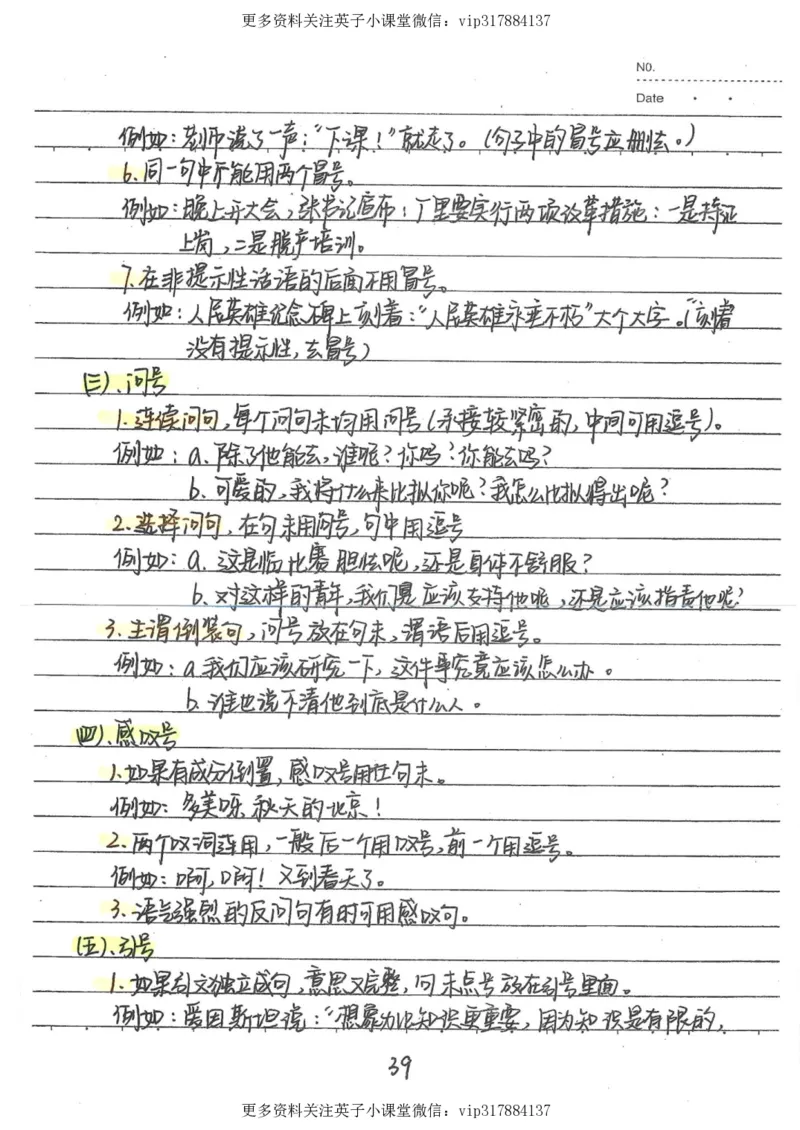 更多资料关注英子小课堂微信：vip317884137
N0.
Date
例如：老师说了一声：“下课！”就走了。（句子中的冒号应删去。）
6.同一句中不能用两个冒号。
例如：晚上开大会，张书记宣布：厂里要实行两项改革措施：一是持证
上岗，二是脱产培训。
7.在非提示性话语的后面不用冒号。
例如：人民英雄纪念碑上刻着：“人民英雄永垂不朽”大个大字。（“刻着
没有提示性，去冒号）
(三)、问号
1.连续问句，每个问句末均用问号（承接较紧密的，中间可用逗号）。
例如：a.除了他能去，谁呢？你吗？你能去吗？
b.可爱的，我将什么来比拟你呢？我怎么比拟得出呢？
2.选择问句，在句末用问号，句中用逗号
例如：a.这是临比赛胆怯呢，还是身体不舒服？
b.对这样的青年，我们是应该支持他呢，还是应该指责他呢？
3.主谓倒装句，问号放在句末，谓语后用逗号。
例如：a我们应该研究一下，这件事究竟应该怎么办。
b.谁也说不清他到底是什么人。
(四)、感叹号
1.如果有成分倒置，感叹号用在句末。
例如：多美呀，秋天的北京！
2.两个叹词连用，一般后一个用叹号，前一个用逗号。
例如：啊，啊！又到春天了。
3.语气强烈的反问句有时可用感叹句。
(五)、引号
1.如果引文独立成句，意思又完整，句末点号放在引号里面。
例如：爱因斯坦说：“想象力比知识更重要，因为知识是有限的，
39
更多资料关注英子小课堂微信：vip317884137